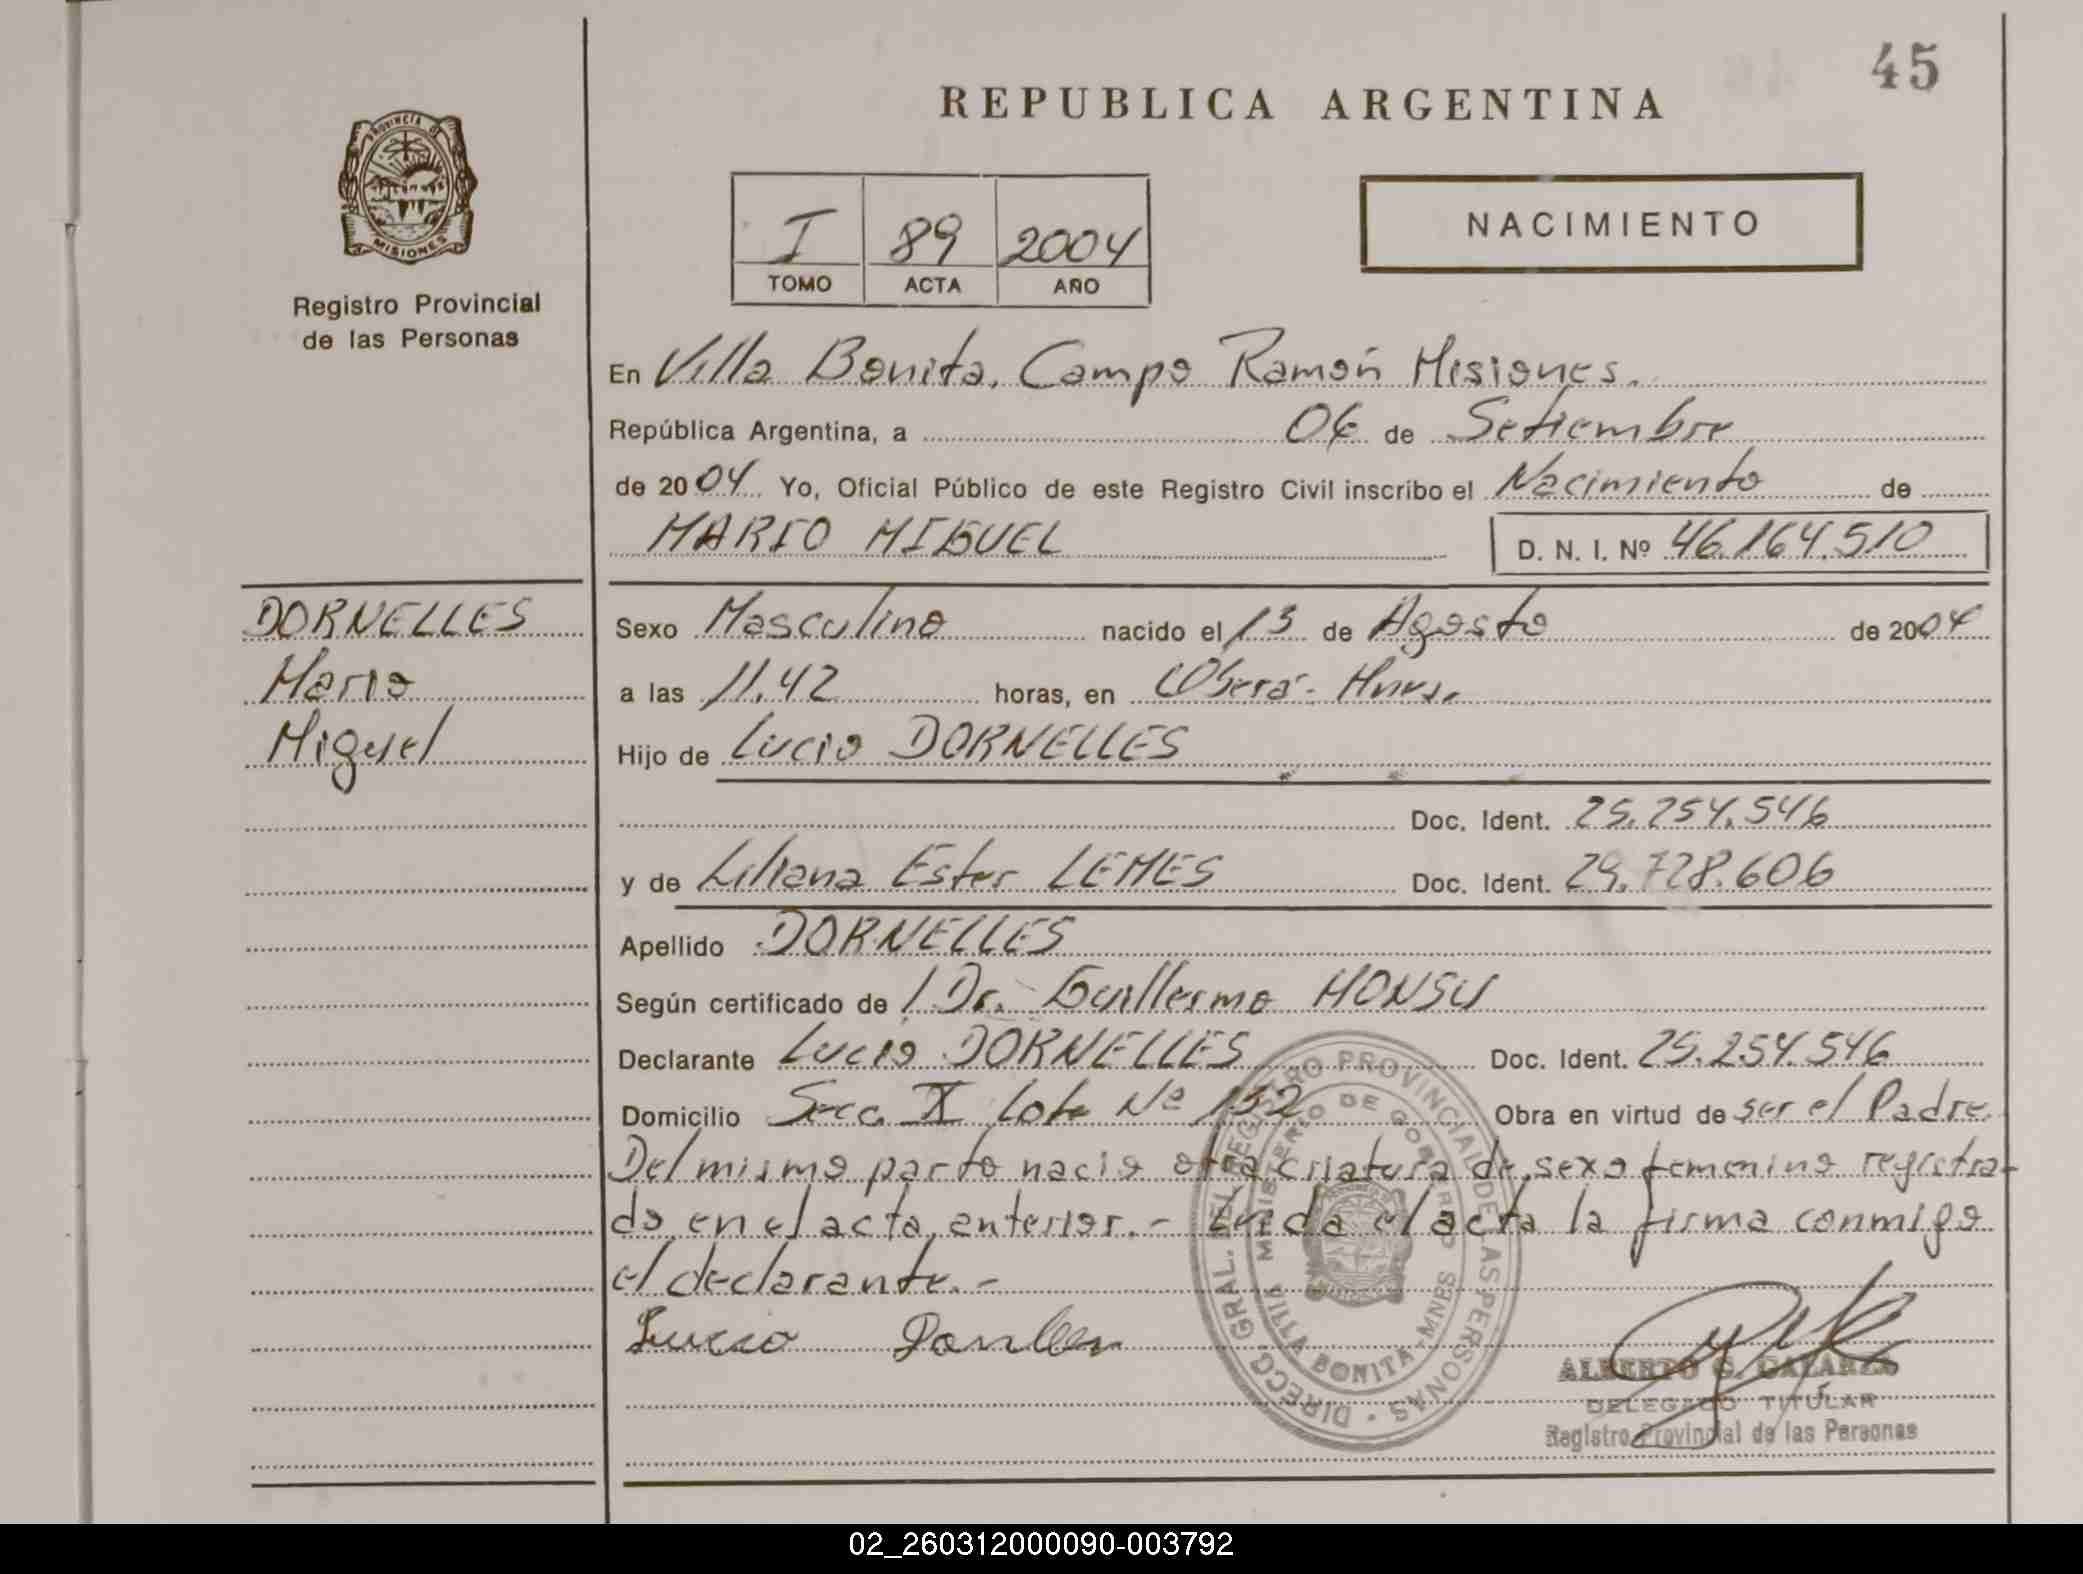 45
REPUBLICA ARGENTINA
PROVINCIA DE
MISIONES
Registro Provincial
de las Personas
I 89 2004
TOMO ACTA AÑO
NACIMIENTO
En Villa Bonita, Campo Ramón Misiones.
República Argentina, a 06 de Setiembre
de 2004 Yo, Oficial Público de este Registro Civil inscribo el Nacimiento de
MARIO MIGUEL D. N. I. Nº 46.164.510
DORNELLES
Mario
Miguel
Sexo Masculino nacido el 13 de Agosto de 2004
a las 11.42 horas, en Oberá-
Hijo de Lucio DORNELLES
Doc. Ident. 25.254.546
y de Liliana Ester LEMES Doc. Ident. 29.728.606
Apellido DORNELLES
Según certificado de Dr. Guillermo MONSU
Declarante Lucio DORNELLES Doc. Ident. 25.254.546
Domicilio Secc. X Lote Nº 132 Obra en virtud de ser el Padre.
Del mismo parto nacio otra criatura de sexo femenino registra-
do en el acta anterior.- Leida el acta la firma conmigo
el declarante.-
Lucio
DIRECC. GRAL. DEL REGISTRO PROVINCIAL DE LAS PERSONAS
MINISTERIO DE GOBIERNO
VILLA BONITA - MNES
ALBERTO G. GALARZA
DELEGADO TITULAR
Registro Provincial de las Personas
02_260312000090-003792